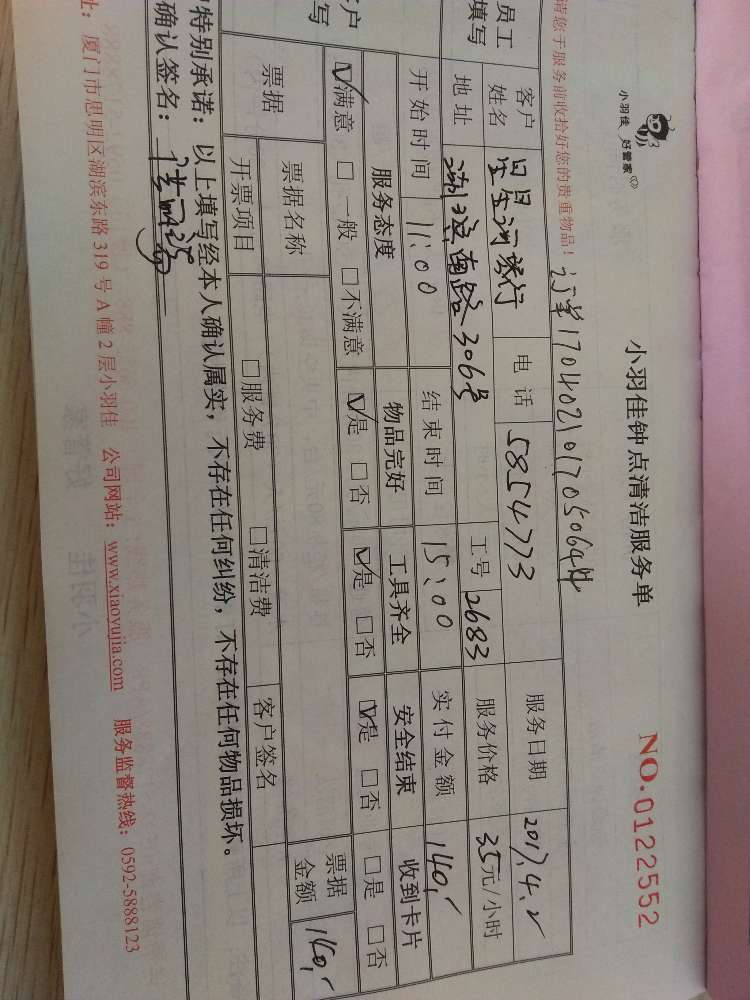 小羽佳 好管家
小羽佳钟点清洁服务单
NO.0122552
请您于服务前收拾好您的贵重物品!
员工
填写
客户
姓名
电话
5854773
服务日期
2017.4.2
地址
南路306号
工号
2683
服务价格
35元/小时
开始时间
11:00
结束时间
15:00
实付金额
140,
服务态度
物品完好
工具齐全
安全结束
收到卡片
☑满意 □一般 □不满意
☑是 □否
☑是 □否
☑是 □否
□是 □否
票据
票据名称
票据
金额
140,
开票项目
□服务费
□清洁费
客户签名
特别承诺:以上填写经本人确认属实,不存在任何纠纷,不存在任何物品损坏。
确认签名:
址:厦门市思明区湖滨东路319号A幢2层小羽佳 公司网站:www.xiaoyujia.com 服务监督热线:0592-5888123